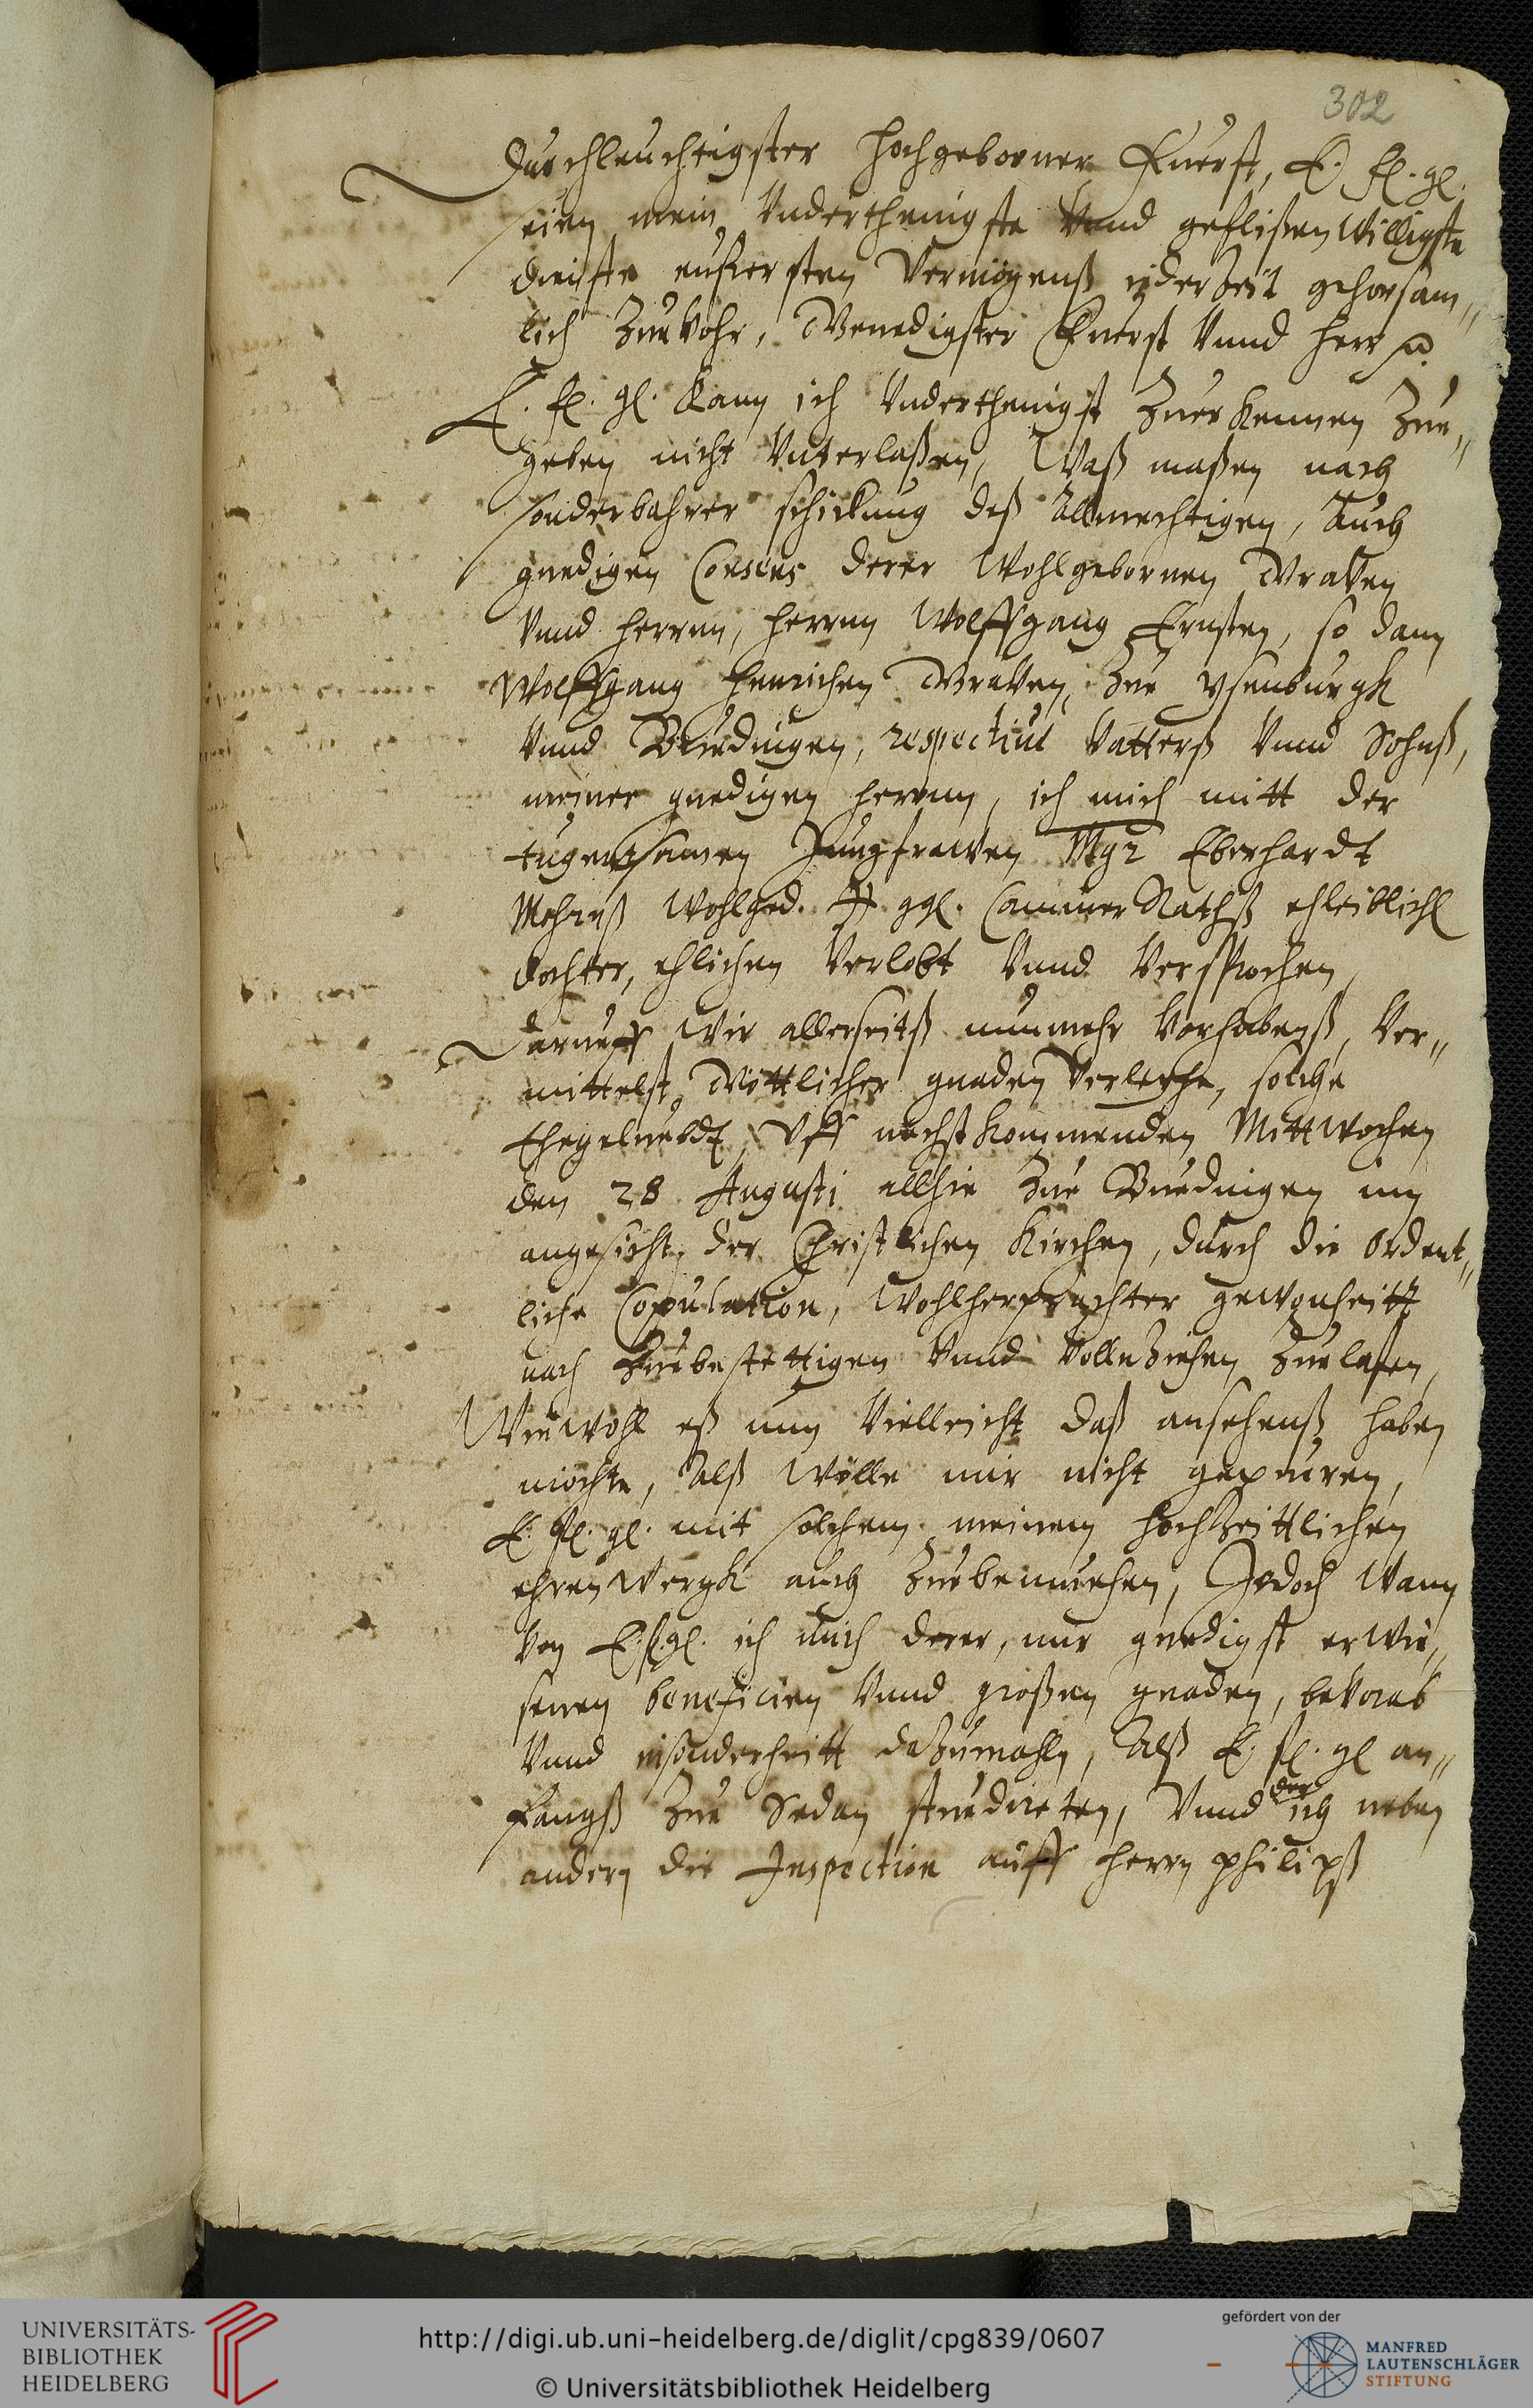 302
Durchleuchtigster Hochgeborner Fuerst, E. fl. gl.
seien mein Vnderthenigste Vnnd geflißenwilligste
dienste eusersten Vermögenß iderZeit gehorsam„
lich Zuuohr, Genedigster Fuerst Vnnd Herr
E. fl. gl. kann ich Vnderthenigst Zuerkennen Zue„
geben nicht Vnterlaßen, Waß maßen nach
sonderbahrer schickung deß Allmechtigen, Auch
gnedigen Consens derer Wohlgebornen Grauen
Vnnd Herrnn, Herrnn Wolffgang Ernsten, so dann
Wolffgang Henrichen Grauen Zue ysenburgk
Vnnd Buedingen, respectiue Vatterß Vnnd Sohnß,
meiner gnedigen Herrnn, ich mich mitt der
tugentsamen Jungfrawen Mgr Eberhardt
wohlged. ggl. Cammer Rathß ehleiblichl
dochter, ehlichen Verlobt Vnnd Versprochen,
Darauff Wir allerseitß nunmehr Vorhabenß, Ver„
mittelst Göttlicher gnaden Verleyhe, solche
Ehegeluebdt Vff nechstkommenden Mittwochen
den 28 Augusti allhie Zue Buedingen inn
angesicht der Christlichen Kirchen, durch die Ordent„
liche Copulation, Wohlherprachter gewonheitt
nach Zuebestettigen Vnnd VollnZiehen Zuelaßen,
Wiewohl eß nun Vielleicht daß ansehenß haben
möchte, Alß Wölle mir nicht gepeuren,
E. fl. gl. mit solchem meinem hochZeittlichen
ehrenWergk auch Zuebemuehen, Jedoch Wann
Von E. fl. gl. ich mich derer, mir gnedigst erwie„
senen beneficien Vnnd großen gnaden, beVorab
Vnnd insonderheitt daZumahln, Alß E. fl. gl an„
fangß Zue Sedan studireten, Vnnd der ich neben
andern die Inspection auff Herrn philipß
UNIVERSITÄTS-
BIBLIOTHEK
HEIDELBERG
http://digi.ub.uni-heidelberg.de/diglit/cpg839/0607
© Universitätsbibliothek Heidelberg
gefördert von der
MANFRED
LAUTENSCHLÄGER
STIFTUNG